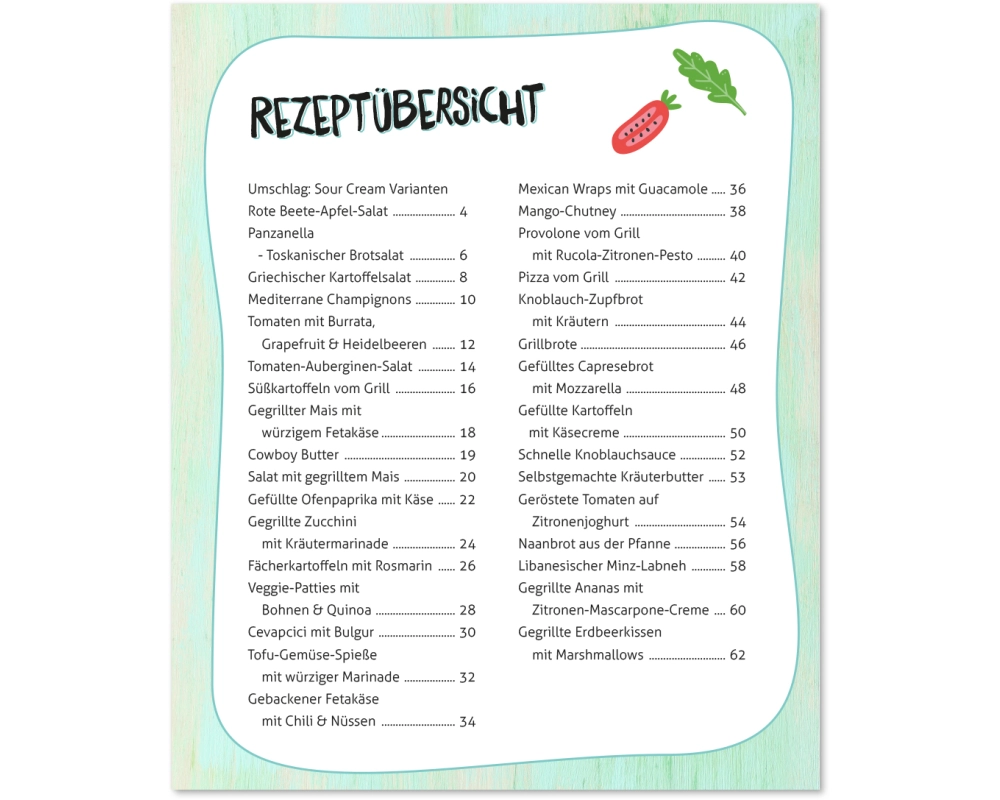 REZEPTÜBERSICHT
Umschlag: Sour Cream Varianten
Rote Beete-Apfel-Salat ...................... 4
Panzanella
- Toskanischer Brotsalat ................ 6
Griechischer Kartoffelsalat ............... 8
Mediterrane Champignons .............. 10
Tomaten mit Burrata,
Grapefruit & Heidelbeeren ........ 12
Tomaten-Auberginen-Salat ............. 14
Süßkartoffeln vom Grill ..................... 16
Gegrillter Mais mit
würzigem Fetakäse .......................... 18
Cowboy Butter ....................................... 19
Salat mit gegrilltem Mais .................. 20
Gefüllte Ofenpaprika mit Käse ...... 22
Gegrillte Zucchini
mit Kräutermarinade ...................... 24
Fächerkartoffeln mit Rosmarin ...... 26
Veggie-Patties mit
Bohnen & Quinoa ............................ 28
Cevapcici mit Bulgur ........................... 30
Tofu-Gemüse-Spieße
mit würziger Marinade .................. 32
Gebackener Fetakäse
mit Chili & Nüssen .......................... 34
Mexican Wraps mit Guacamole ..... 36
Mango-Chutney ..................................... 38
Provolone vom Grill
mit Rucola-Zitronen-Pesto .......... 40
Pizza vom Grill ....................................... 42
Knoblauch-Zupfbrot
mit Kräutern ....................................... 44
Grillbrote ................................................... 46
Gefülltes Capresebrot
mit Mozzarella ................................... 48
Gefüllte Kartoffeln
mit Käsecreme .................................... 50
Schnelle Knoblauchsauce ................ 52
Selbstgemachte Kräuterbutter ...... 53
Geröstete Tomaten auf
Zitronenjoghurt ................................ 54
Naanbrot aus der Pfanne .................. 56
Libanesischer Minz-Labneh ............ 58
Gegrillte Ananas mit
Zitronen-Mascarpone-Creme .... 60
Gegrillte Erdbeerkissen
mit Marshmallows ........................... 62